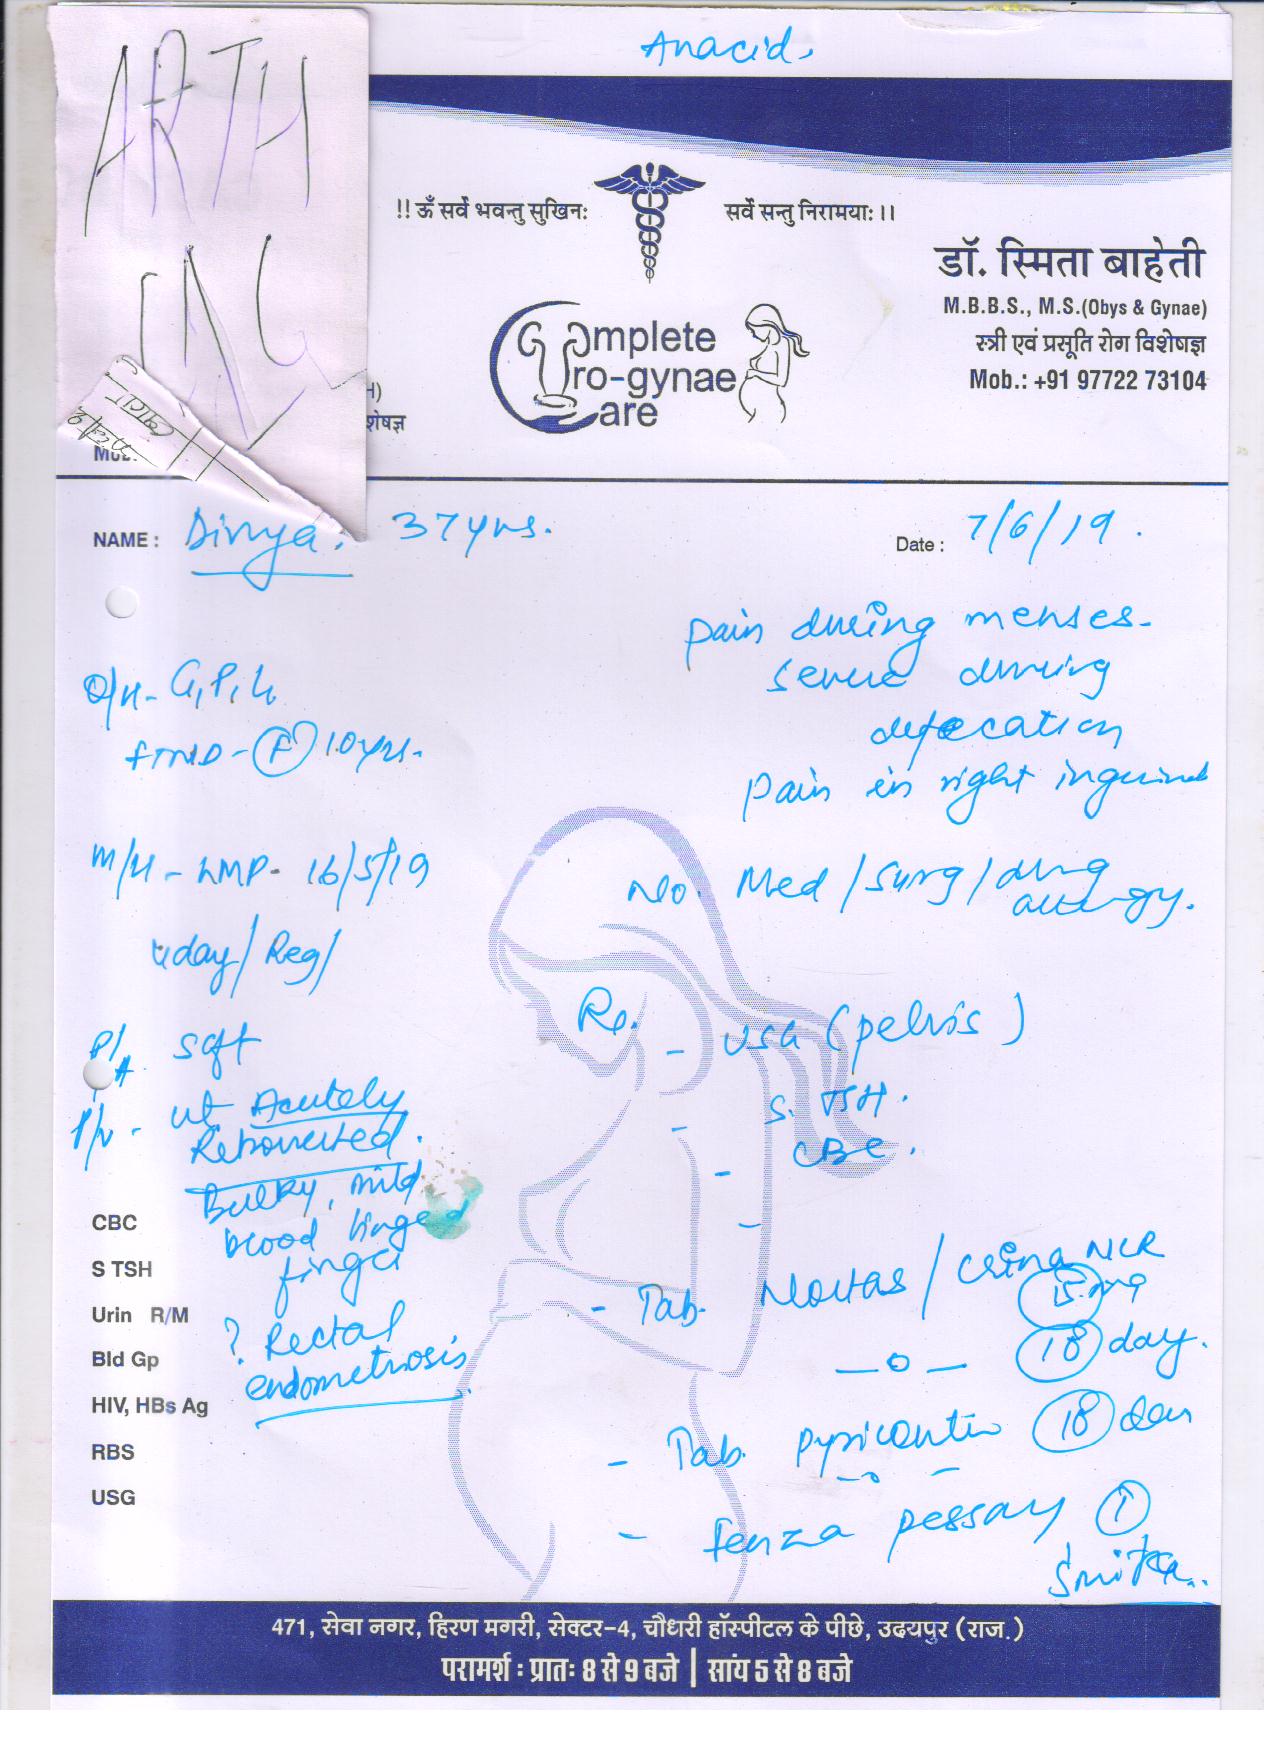 Anacid
ARTH
!! ॐ सर्वे भवन्तु सुखिनः सर्वे सन्तु निरामयाः ।।
डॉ. स्मिता बाहेती
M.B.B.S., M.S.(Obys & Gynae)
स्त्री एवं प्रसूति रोग विशेषज्ञ
Mob.: +91 97722 73104
Complete
Uro-gynae
Care
H)
शेषज्ञ
Mob.
NAME : Divya. 37 yrs.
Date : 7/6/19.
pain during menses-
severe during
defecation
pain in right inguinal
O/H-
FTND - (F) 10 yrs.
M/H - LMP - 16/5/19
4day/Reg/
No. Med / Surg / drug
allergy.
P/A. soft
P/V - ut Acutely
Retroverted.
Bulky, mild
blood tinged
finger
? Rectal
endometriosis.
Rx.
- USG (pelvis)
- S. TSH.
- CBC.
-
- Tab. / Crina NCR
15 mg
—o— (18) day.
- Tab. (18) day
—o—
- Fenza pessary (1)
Smita..
CBC
S TSH
Urin R/M
Bld Gp
HIV, HBs Ag
RBS
USG
471, सेवा नगर, हिरण मगरी, सेक्टर-4, चौधरी हॉस्पीटल के पीछे, उदयपुर (राज.)
परामर्श : प्रातः 8 से 9 बजे | सांय 5 से 8 बजे